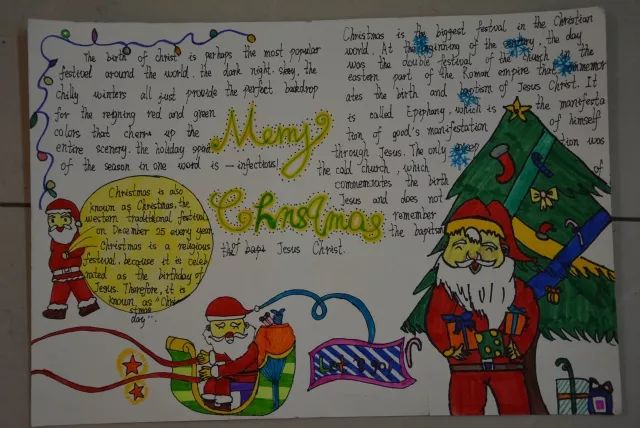 The birth of christ is perhaps the most popular
festival around the world. the dark night sky, the
chilly winters all just provide the perfect backdrop
for the reigning red and green
colors that cherrs up the
entire scenery. the holiday spood
of the season in one word is — infectious!
Merry
Christmas
Christmas is the biggest festival in the Christian
world. At the beginning of the century, the day
was the double festival of the church in the
eastern part of the Roman empire that commemor
ates the birth and baptism of Jesus Christ. It
is called Epiphany, which is the manifesta
tion of good's manifestation of himself
through Jesus. The only was
the old church, which of
commemorates the birth
Jesus and does not
remember
the baptism
that bapi Jesus Christ.
Christmas is also
known as Christmas, the
western traditional festival,
on December 25 every year.
Christmas is a religious
festival, because it is celeb
rated as the birthday of
Jesus. Therefore, it is
known as "Chri
stmas
day".
Let's go!